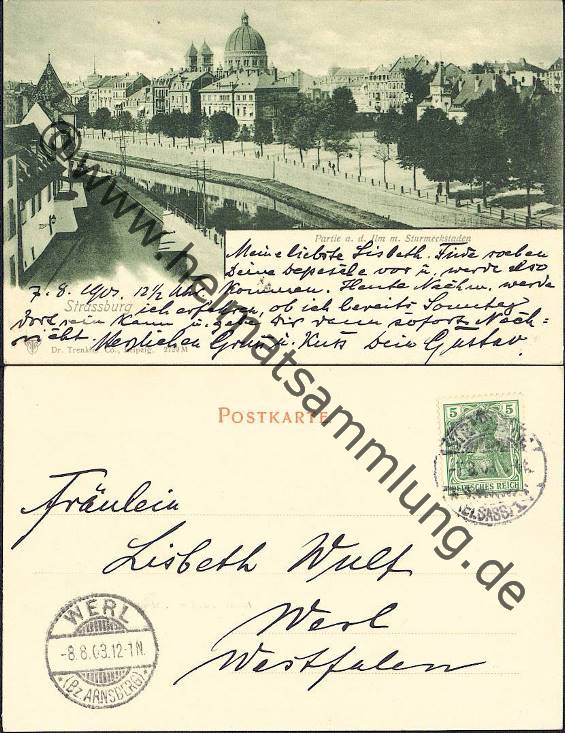 Partie a. d. Ilm m. Sturmeckstaden
Meine liebste Lisbeth. Finde soeben
Deine Depesche vor u. werde also
7. 8. 1903. 12½ Uhr kommen. Heute Nachm. werde
Strassburg ich erfahren, ob ich bereits Sonntag
Dort sein kann u. gebe Dir dann sofort Nach-
richt. Herzlichen Gruss u. Kuss Dein Gustav.
Dr. Trenkler Co., Leipzig. 2129 M
© www.heimatsammlung.de
POSTKARTE
5 5
DEUTSCHES REICH
(ELSASS)
Fräulein
Lisbeth Wulf
Werl
Westfalen
WERL
-8.8.03.12-1N.
*(Bz. ARNSBERG)*